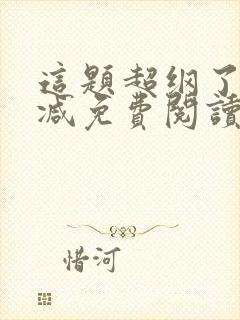 這題超綱了
減免費閱讀
惜河